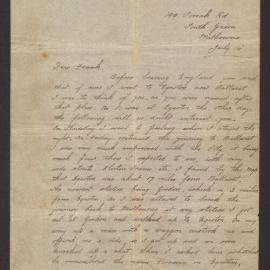 199 Toorak Rd
South Yarra
Melbourne
July
Dear Frank
Before leaving England you said
that if ever I went to Egerton near Ballarat
I was to think of you, as you were named after
that place. As I was at Egerton the other day,
the following will no doubt interest you.
On Thursday I went to Geelong which I stayed the
night, on Friday continued the journey to Ballarat
I was very much impressed with the City, it being
much finer than I expected to see, with very
wide streets Electric Trams etc. I found by the Map
that Egerton was about 17 miles from Ballarat
the nearest station being Gordon, which is 3 miles
from Egerton, as I was allowed to break the
journey back to Melbourne at any station, I got
out at Gordon and walked up to Egerton. On my
way up a man with a waggon overtook me and
offered me a ride, so I got up and we soon
reached up a hill. When I asked him whether
he remembered the name in Egerton